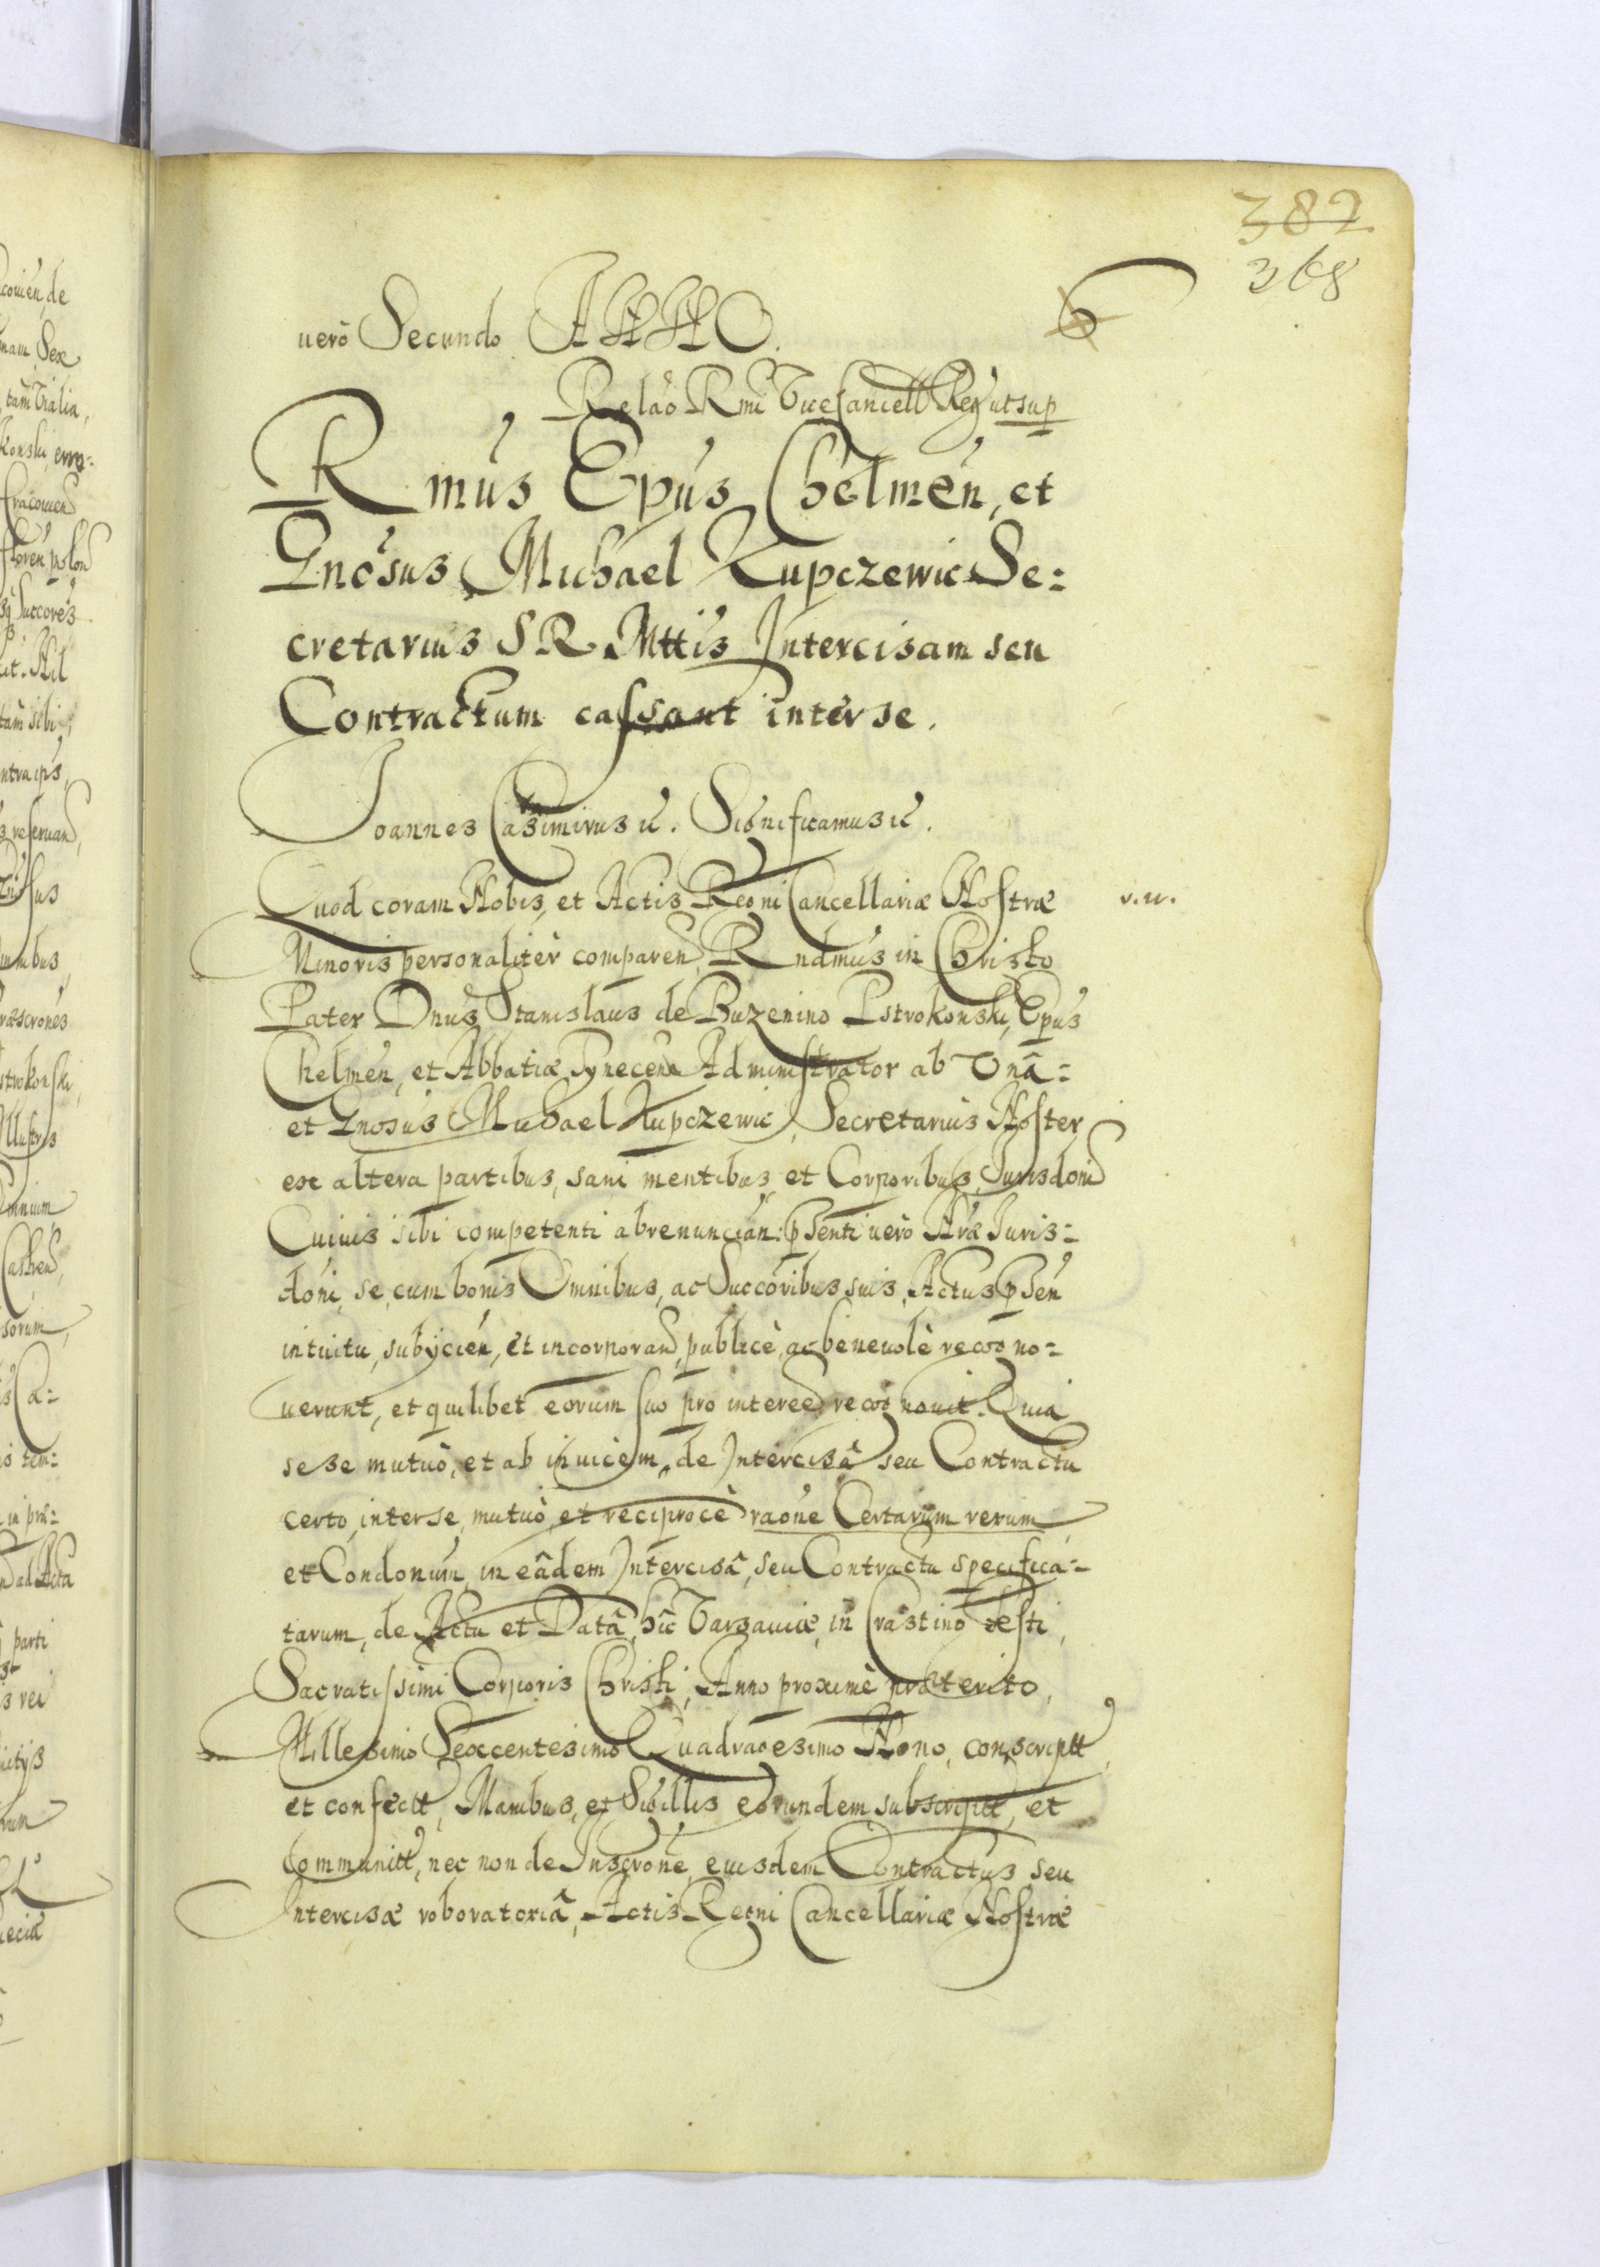 382
368
uerò Secundo ANNO.
Relao Rmi ViceCancell Regni ut sup
Rmus Epus Chelmen, et
Gnosus Michael Kupczewic Se=
cretarius S R Mttis Intercisam seu
Contractum cassant inter se.
Joannes Casimirus ic. Significamus ic.
Quod coram Nobis, et Actis Regni Cancellariæ Nostræ v. w.
Minoris personalitèr comparen, Rndmus in Christo
Pater Dnus Stanislaus de Buzenino Pstrokonski, Epus
Chelmen, et Abbatiæ Tynecen Administrator ab Unâ=
et Gnosus Michael Kupczewic, Secretarius Noster
ex altera partibus, sani mentibus, et Corporibus, Jurisdoni
Cuiuis sibi competenti abrenuncian: pSenti uerò Nræ Juris=
doni, se, cum bonis Omnibus, ac Succoribus suis, Actus pSen
intuitu, subijcien, et incorporand, publicè, ac beneuolè recog no=
uerunt, et quilibet eorum suo pro interee, recog nouit. Quia
sese mutuò, et ab inuicem, de Intercisâ seu Contractu
certo, inter se, mutuò, et reciprocè raone Certarum rerum
et Condonum, in eâdem Intercisâ, seu Contractu specifica=
tarum, de Actu et Datâ, hîc Varsauiæ, in Crastino Festi
Sacratissimi Corporis Christi, Anno proximè præterito,
Millesimo Sexcentesimo Quadragesimo Nono, conscriptt
et confectt, Manibus, et Sigillis eorundem, subscriptt, et
Communitt, nec non de Inscrone, eiusdem Contractus, seu
Intercisæ roboratoriâ, Actis Regni Cancellariæ Nostræ